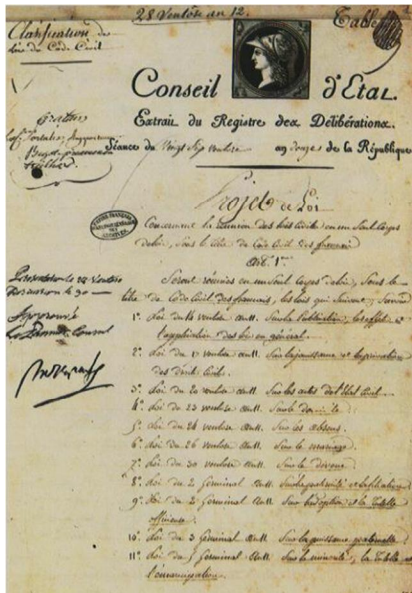 28 Ventôse an 12.
Table
Classification des
lois du Code Civil
Conseil d'Etat.
Extrait du Registre des Délibérations.
Séance du Vingt Sept ventose an douze de la République
Projet de Loi
Concernant la réunion des lois civiles en un Seul Corps
de loix, sous le titre de Code Civil des français
Art. 1er
Seront réunies en un Seul Corps de loix, Sous le
titre de Code Civil des français, les lois qui Suivent, Savoir
1º. Loi du 14 ventose an 11. Sur la publication, les effets et
l'application des lois en général.
2º. Loi du 17 ventose an 11. Sur la jouissance et la privation
des droits civils.
3º. Loi du 20 ventose an 11. Sur les actes de l'Etat Civil
4º. Loi du 23 ventose an 11. Sur le
5º. Loi du 24 ventose an 11. Sur les absens.
6º. Loi du 26 ventose an 11. Sur le mariage.
7º. Loi du 30 ventose an 11. Sur le divorce
8º. Loi du 2 Germinal an 11. Sur la paternité et la filiation
9º. Loi du 2 Germinal an 11. Sur l'adoption et la tutelle
officieuse.
10º. Loi du 3 Germinal an 11. Sur la puissance paternelle
11º. Loi du 5 Germinal an 11. Sur la minorité, la tutelle et
l'émancipation.
Présenté le 28 Ventose
Discussion le 30
Approuvé
le Premier Consul